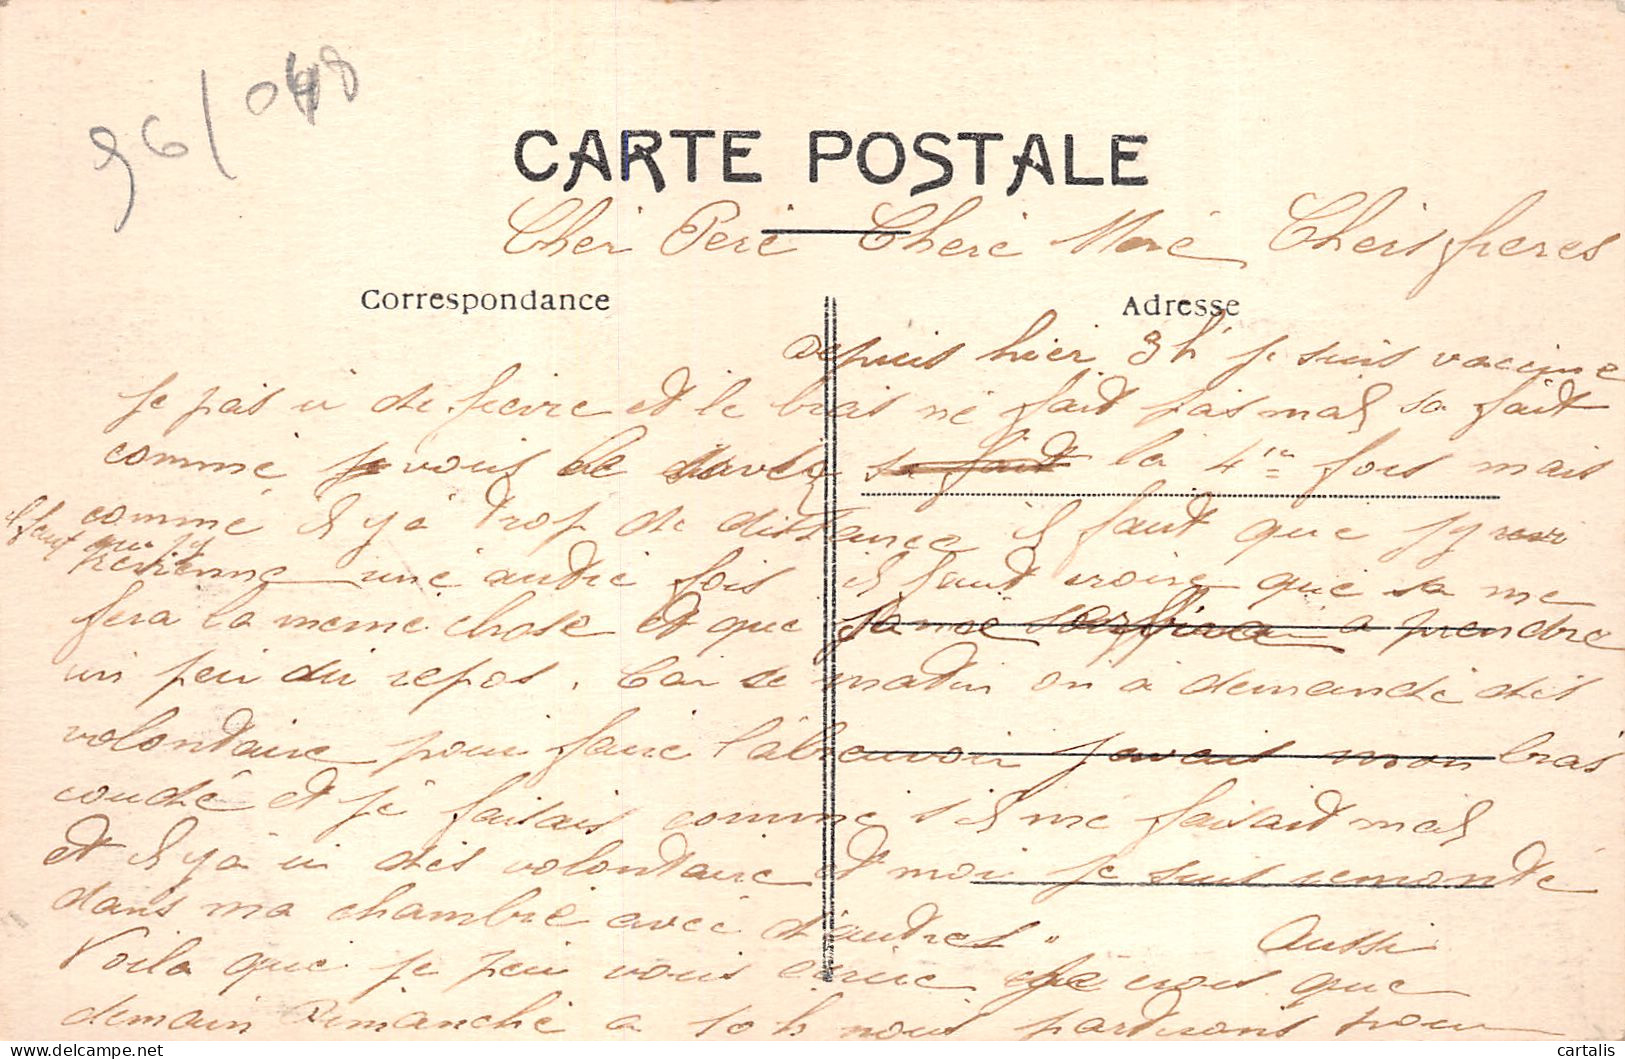 96/048
CARTE POSTALE
Cher Peré Cheré Meré Chers freres
Correspondance
Adresse
depuis hier 3h je suis vacciné
je pas u de fievre et le bras né fait pas mal sa fait
commé vous le savez sa fait la 4me fois mais
commé il y a trop de distance il faut que j'y
il faut que j'y revienne une autre fois il faut croire que sa me
fera la meme chose et que à prendre
un peu du repos. Car se matin on a demandé des
volontaire pour faire l'abreuvoir javais mon bras
coudé et je faisais comme s'il me faisait mal
et il y a u des volontaire et moi je suis remonté
dans ma chambre avec d'autres. Aussi
Voila que je peu vous ecrire je crois que
demain Dimanche a 10 h nous partirons pour
cartalis